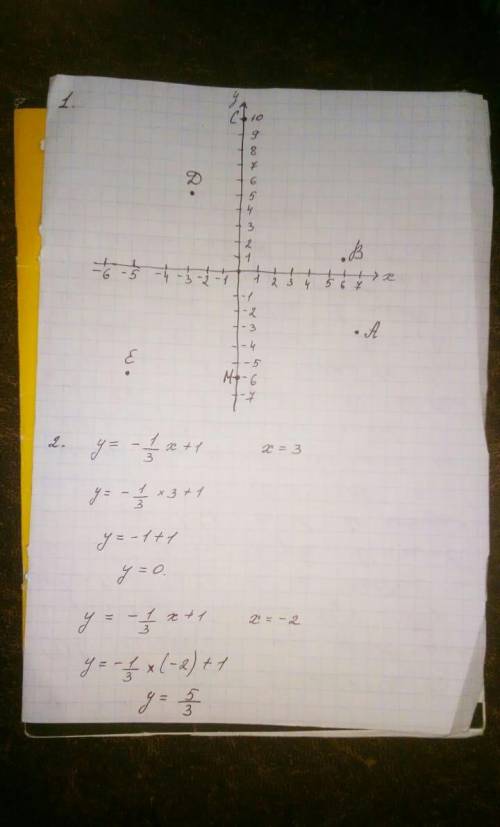 1.
y
C 10
9
8
7
D 6
5
4
3
2
1 B
-6 -5 -4 -3 -2 -1 1 2 3 4 5 6 7 x
-1
-2
-3 A
-4
-5
E M -6
-7
2. y = -1/3 x + 1 x = 3
y = -1/3 × 3 + 1
y = -1 + 1
y = 0.
y = -1/3 x + 1 x = -2
y = -1/3 × (-2) + 1
y = 5/3